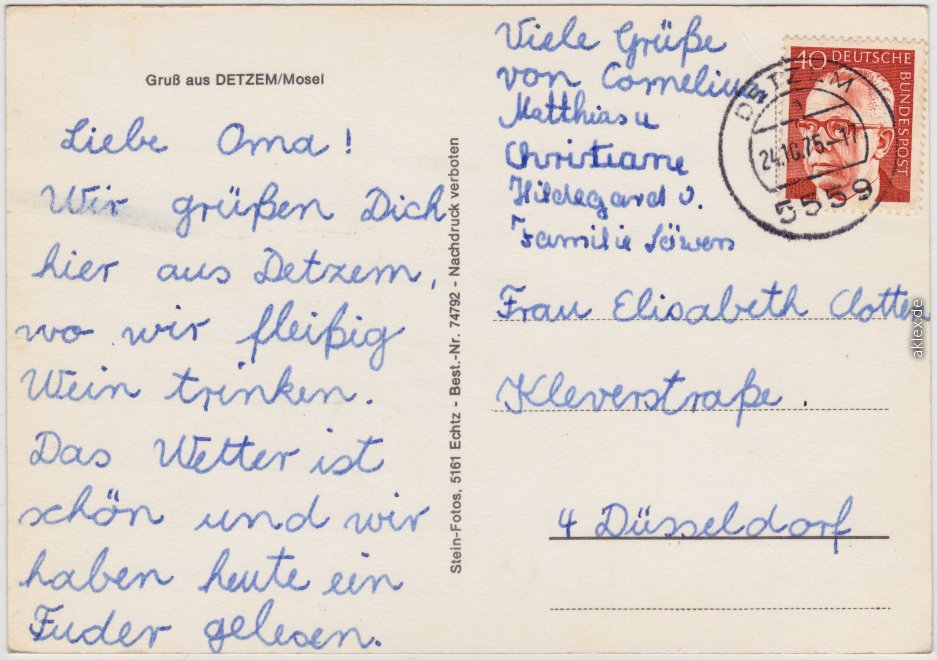 Gruß aus DETZEM/Mosel
Liebe Oma!
Wir grüßen Dich
hier aus Detzem,
wo wir fleißig
Wein trinken.
Das Wetter ist
schön und wir
haben heute ein
Fuder gelesen.
Stein-Fotos, 5161 Echtz - Best.-Nr. 74792 - Nachdruck verboten
Viele Grüße
von Cornelius
Matthias u
Christiane
Hildegard u.
Familie Löwen
40 DEUTSCHE
BUNDESPOST
DETZEM
24.10.75.-17
5559
Frau Elisabeth Clotten
Kleverstraße.
4 Düsseldorf
aklex.de